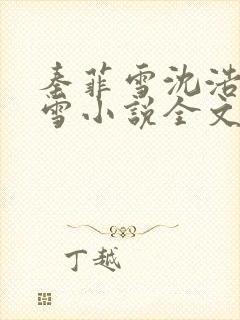 秦菲雪沈浩
雪小说全文
丁越